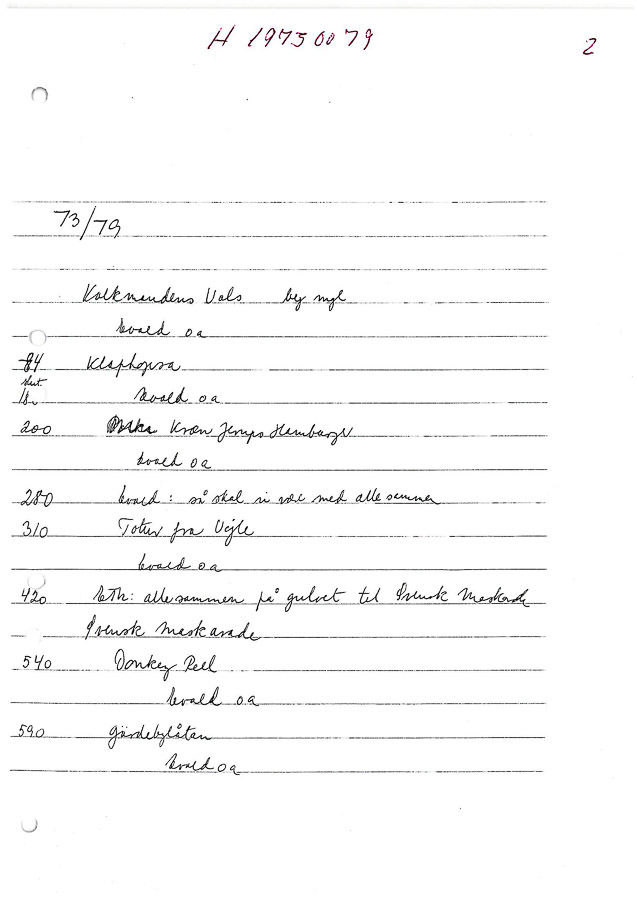 H 19750079
2
73/79
Kolkmandens Vals beg mgl
kvald o a
84 Klaphopsa
slut
kvald o a
200 Kræn Jemps Hamburger
kvald o a
280 kvald: så skal vi være med alle sammen
310 Totur fra Vejle
kvald o a
420 alle sammen på gulvet til Svensk Maskerade
Svensk Maskarade
540 Donkey Reel
kvald o a
590 Gärdebylåtan
kvald o a